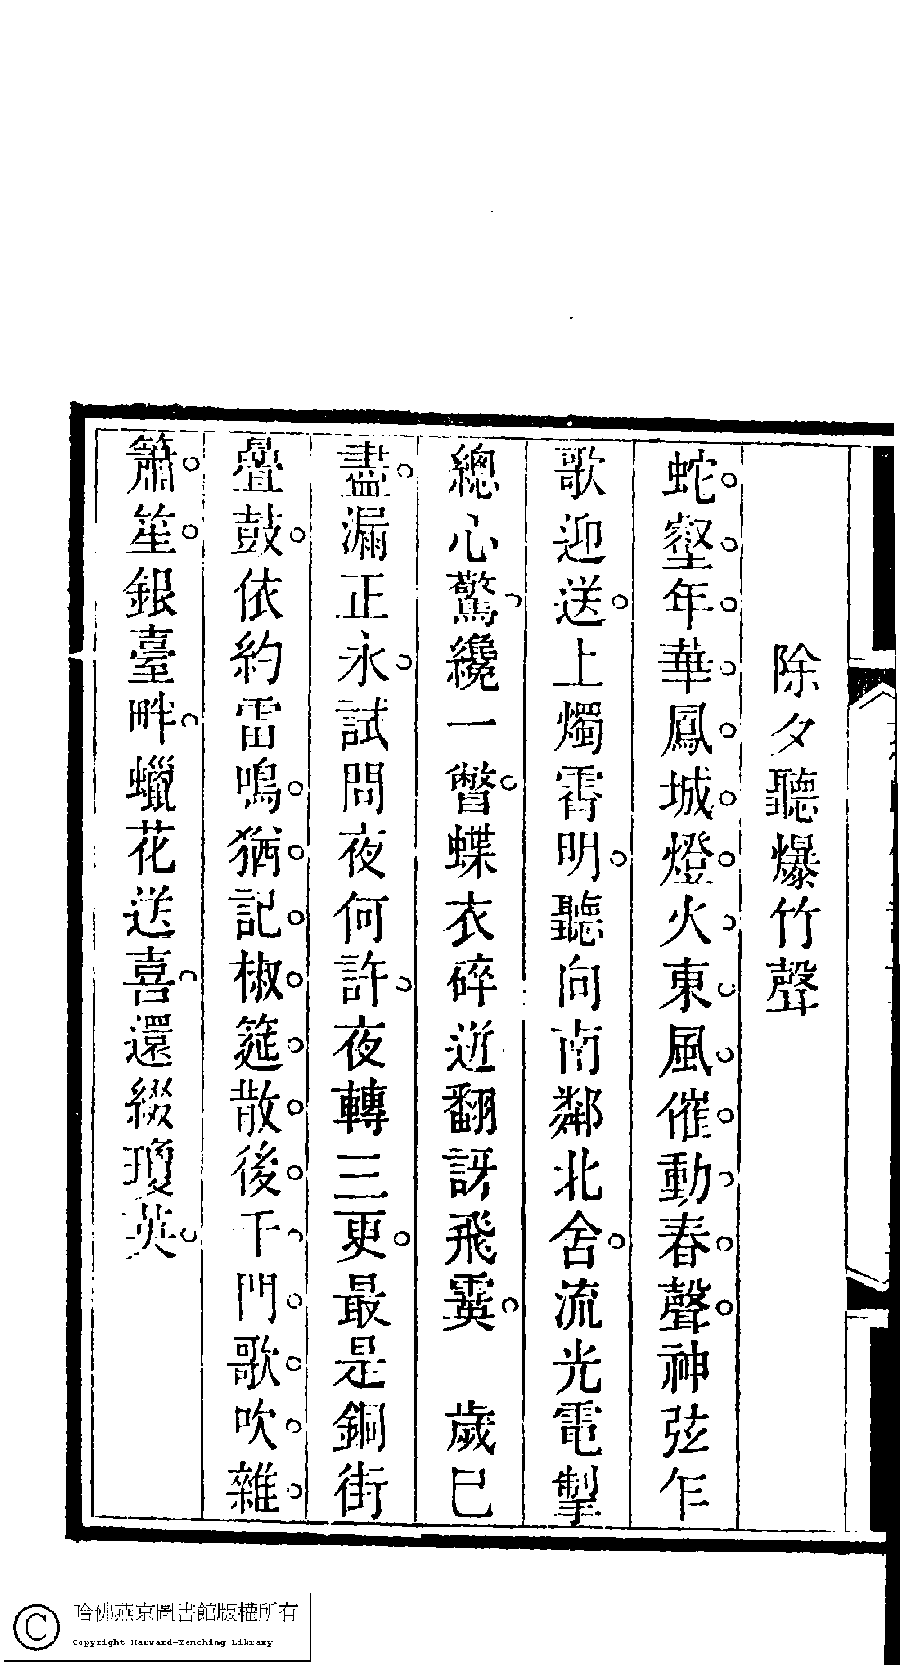 除夕聽爆竹聲
蛇壑年華鳳城燈火東風催動春聲神弦乍
歌迎送上燭霄明聽向南鄰北舍流光電掣
總心驚纔一瞥蝶衣碎迸翻訝飛霙　歲巳
盡漏正永試問夜何許夜轉三更最是銅街
疊鼓依約雷鳴猶記椒筵散後千門歌吹雜
簫笙銀臺畔蠟花送喜還綴瓊英
哈佛燕京圖書館版權所有
Copyright Harvard-Yenching Library